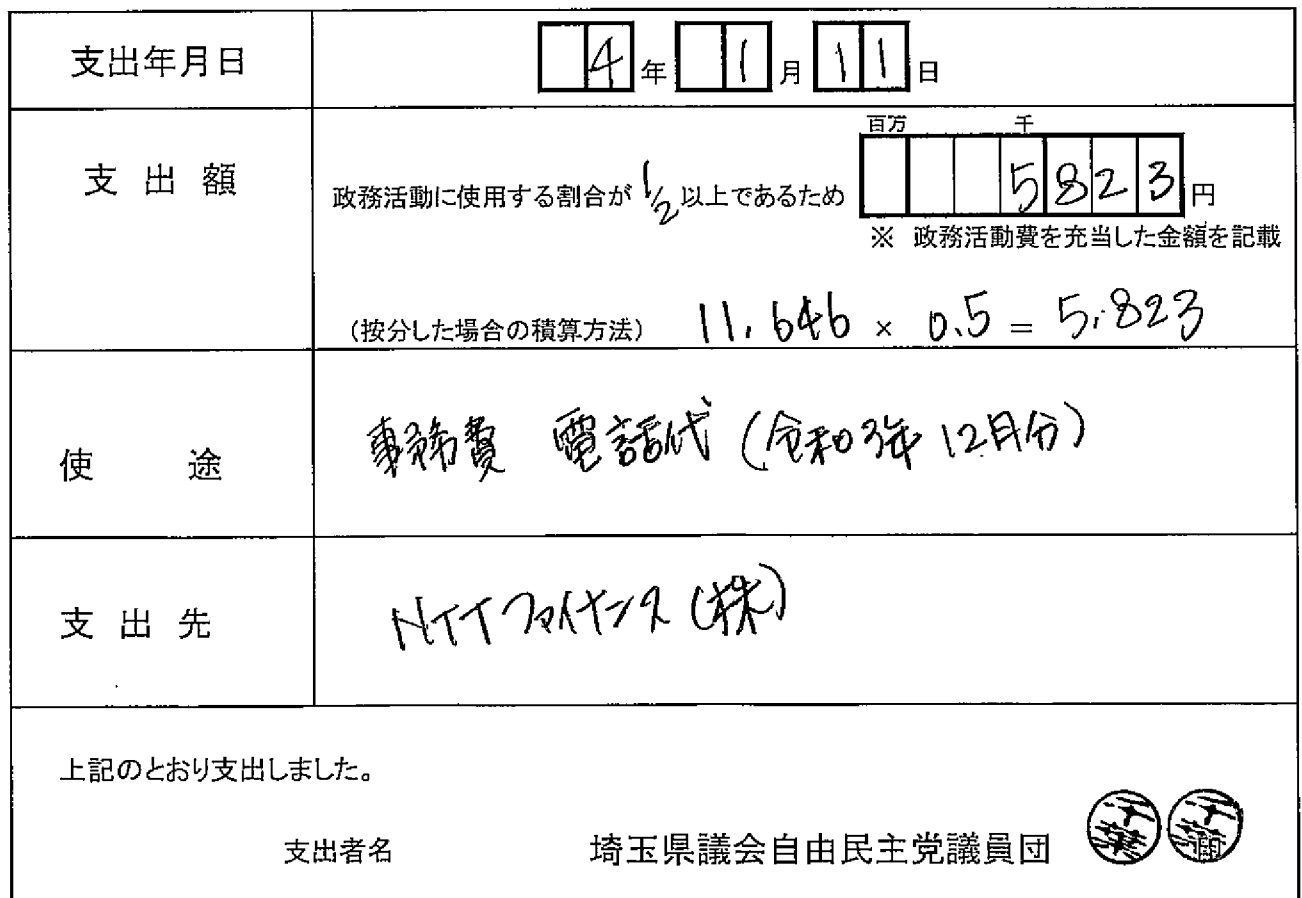 支出年月日 4年 1月 11日
百万 千
支出額 政務活動に使用する割合が1/2以上であるため 5823円
※ 政務活動費を充当した金額を記載
(按分した場合の積算方法) 11,646 × 0.5 = 5,823
使途 事務費 電話代 (令和3年12月分)
支出先 NTTファイナンス(株)
上記のとおり支出しました。
支出者名 埼玉県議会自由民主党議員団 千葉